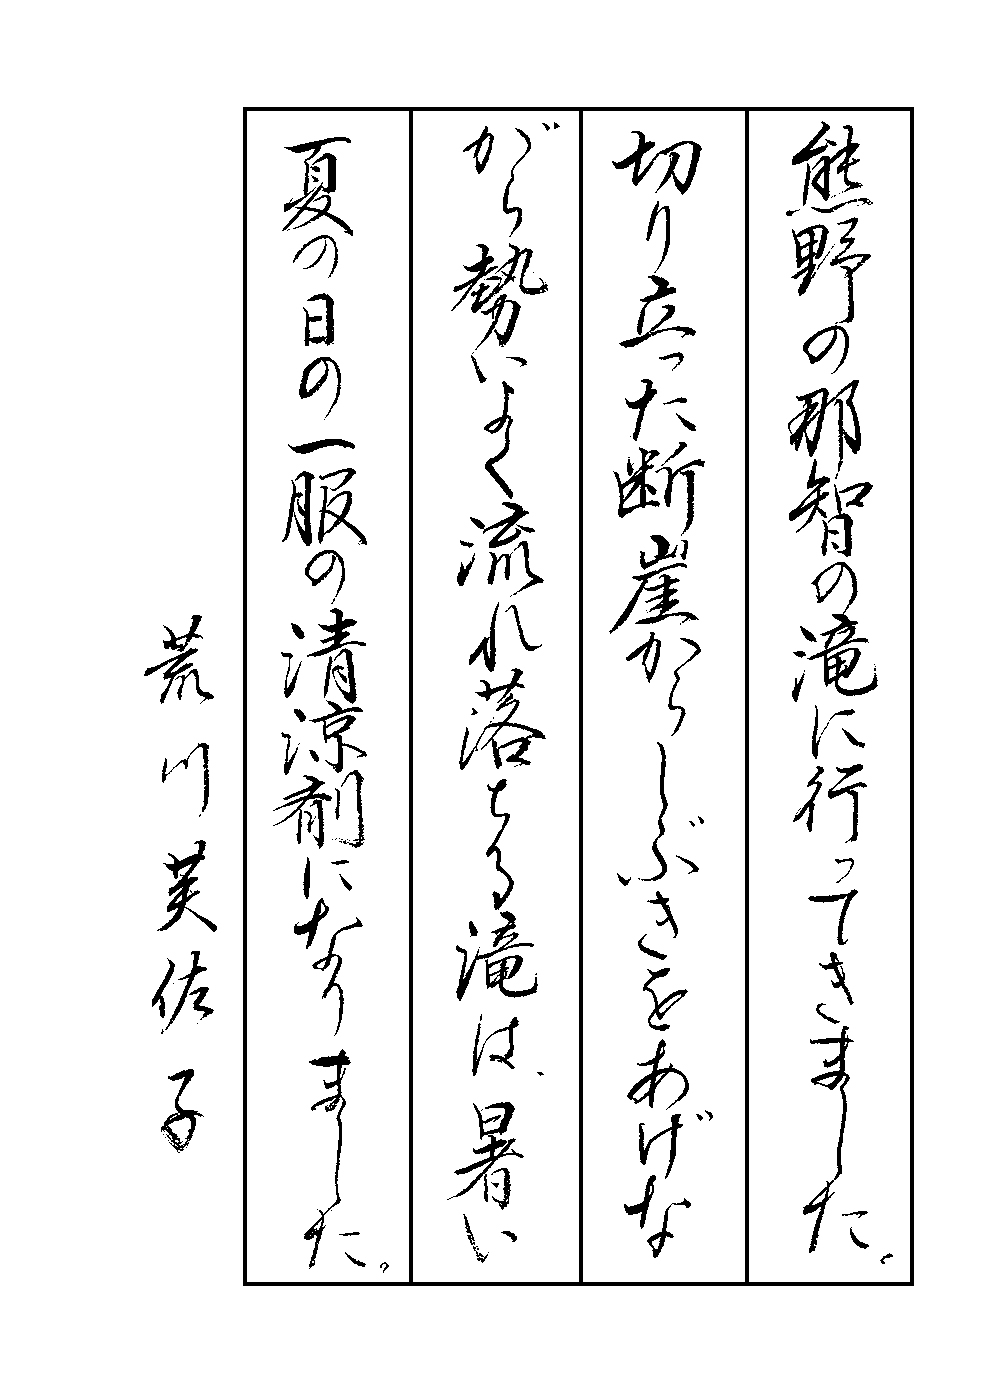 熊野の那智の滝に行ってきました。
切り立った断崖からしぶきをあげな
がら勢いよく流れ落ちる滝は、暑い
夏の日の一服の清涼剤になりました。
荒川芙佐子